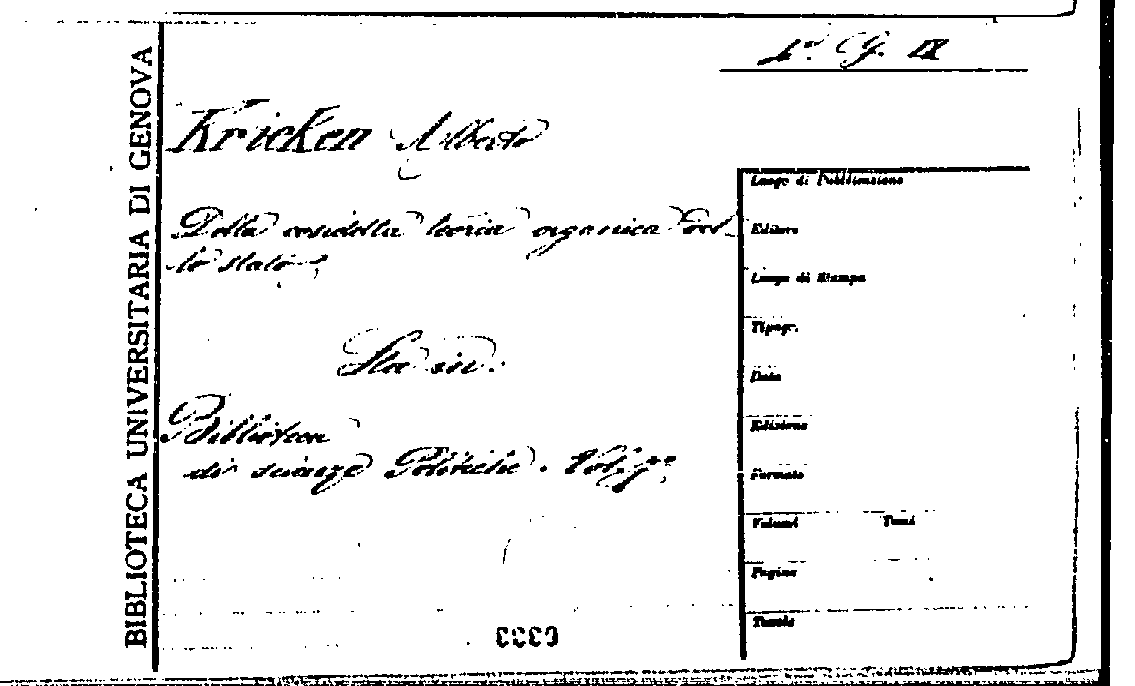 BIBLIOTECA UNIVERSITARIA DI GENOVA
Kricken Alberto
Della cosidetta teoria organica del-
lo stato
Sta in:
Biblioteca
di scienze Politiche. Vol. 7º
Luogo di Pubblicazione
Editore
Luogo di Stampa
Tipogr.
Data
Edizione
Formato
Volumi Tomi
Pagine
Tavole